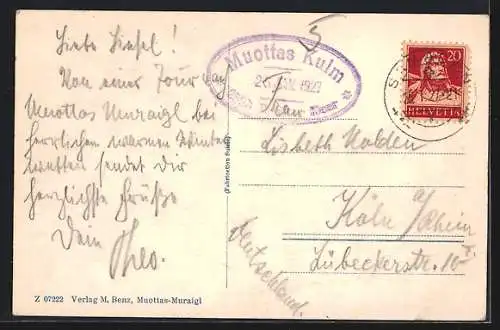 Liebe Liesel!
Von einer Tour auf
Muottas Muraigl bei
herrlichem warmen Winter-
wetter sendet dir
herzlichste Grüße
Dein Theo.
Z 07222 Verlag M. Benz, Muottas-Muraigl
5
Muottas Kulm
1927
Frau
Lisbeth Nolden
Köln a/Rhein
Lübeckerstr. 10
Deutschland.
20
HELVETIA